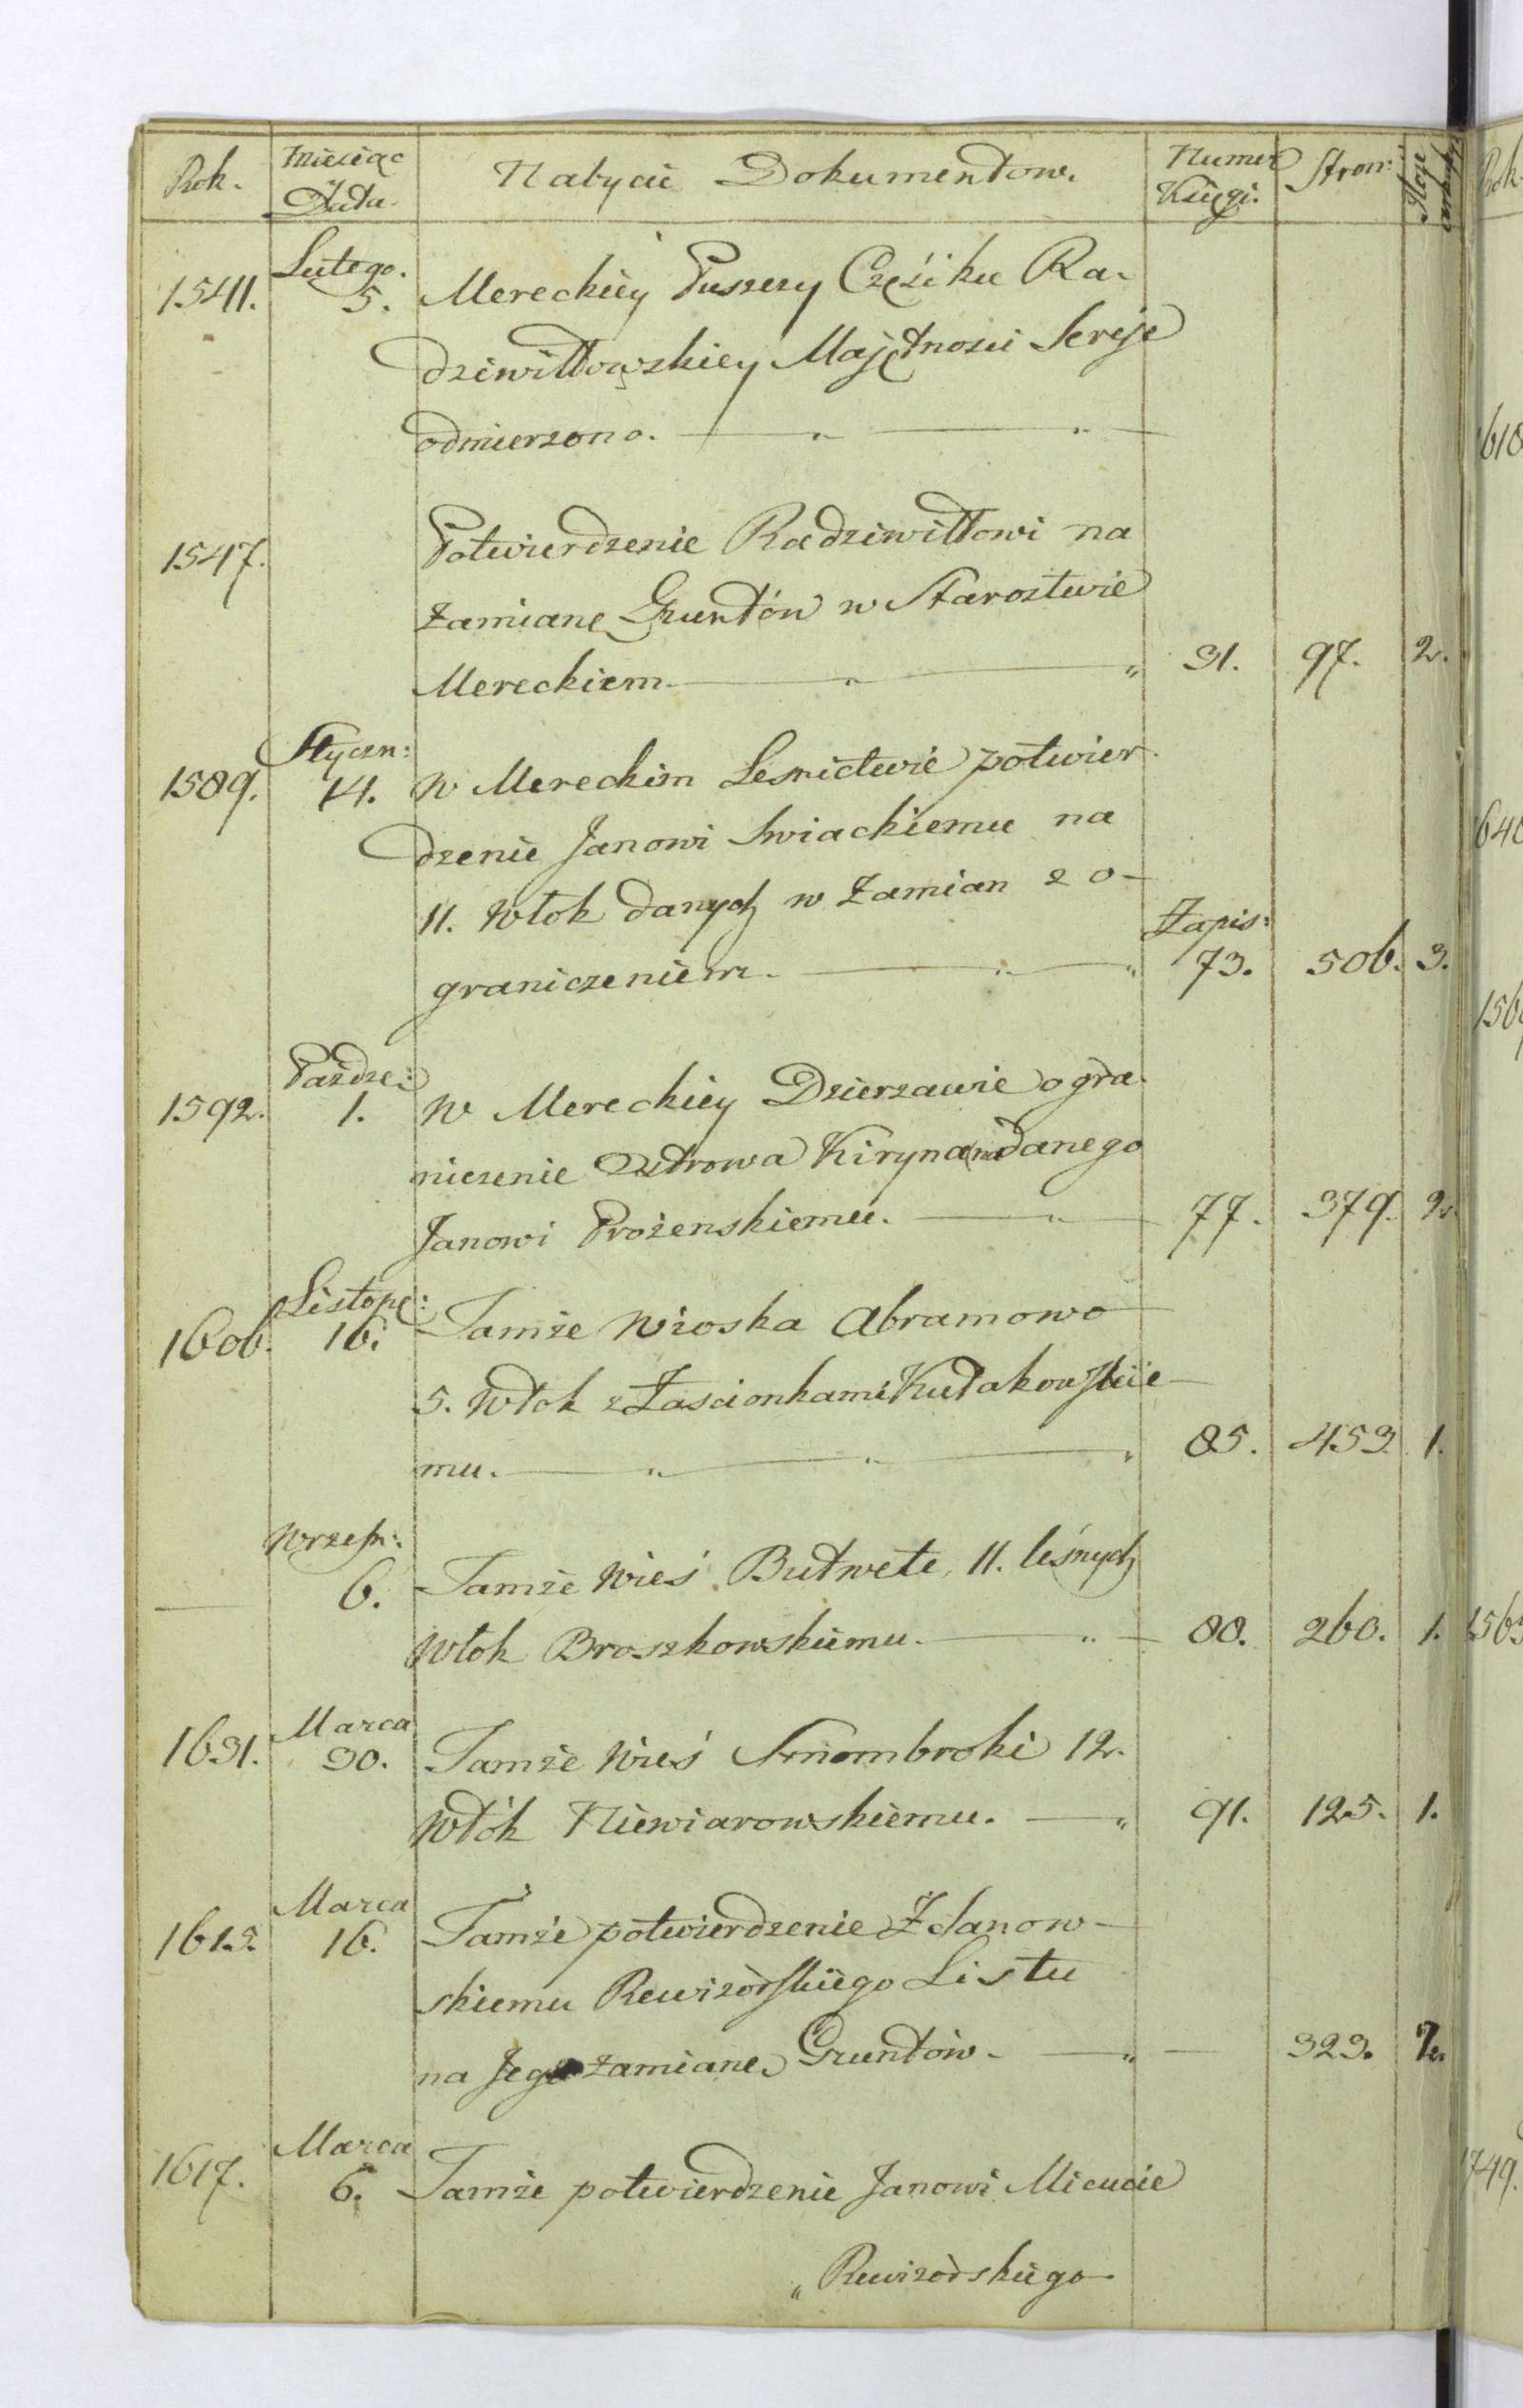 Rok. Miesiąc y Data. Nabycie Dokumentow. Numer Księgi. Stron:
1541. Lutego. 5. Mereckiey Puszczy Cześćiku Ra-
dziwiłłowskiey Majętnosci Sereje
odmierzono.
1547. Potwierdzenie Radziwiłłowi na
zamianę Gruntów w Starostwie
Mereckiem 31. 97. 2.
1589. Styczn: 14. w Mereckim Lesnictwie potwier
dzenie Janowi Swiackiemu na
11. Włok danych w zamian z o-
graniczeniem. Zapis: 73. 506. 3.
1592. Paźdze: 1. w Mereckiey Dzierzawie ogra-
niczenie Ostrowa Kiryna danego
Janowi Prożenskiemu. 77. 379. 2.
1606. Listop: 16. Tamże wioska Abramowo
5. Włok z Zascionkami Kułakowskie-
mu. 85. 453. 1.
Wrześn: 6. Tamże wieś Butwete 11. leśnych
Włok Broszkowskiemu. 88. 260. 1.
1631. Marca 30. Tamże wieś 12.
Włók Niewiarowskiemu. 91. 125. 1.
1613. Marca 16. Tamże potwierdzenie Zdanow-
skiemu Rewizorskiego Listu
na Jego zamianę Gruntów. 323. 2.
1617. Marca 6. Tamże potwierdzenie Janowi Micucie
„ Rewizorskiego